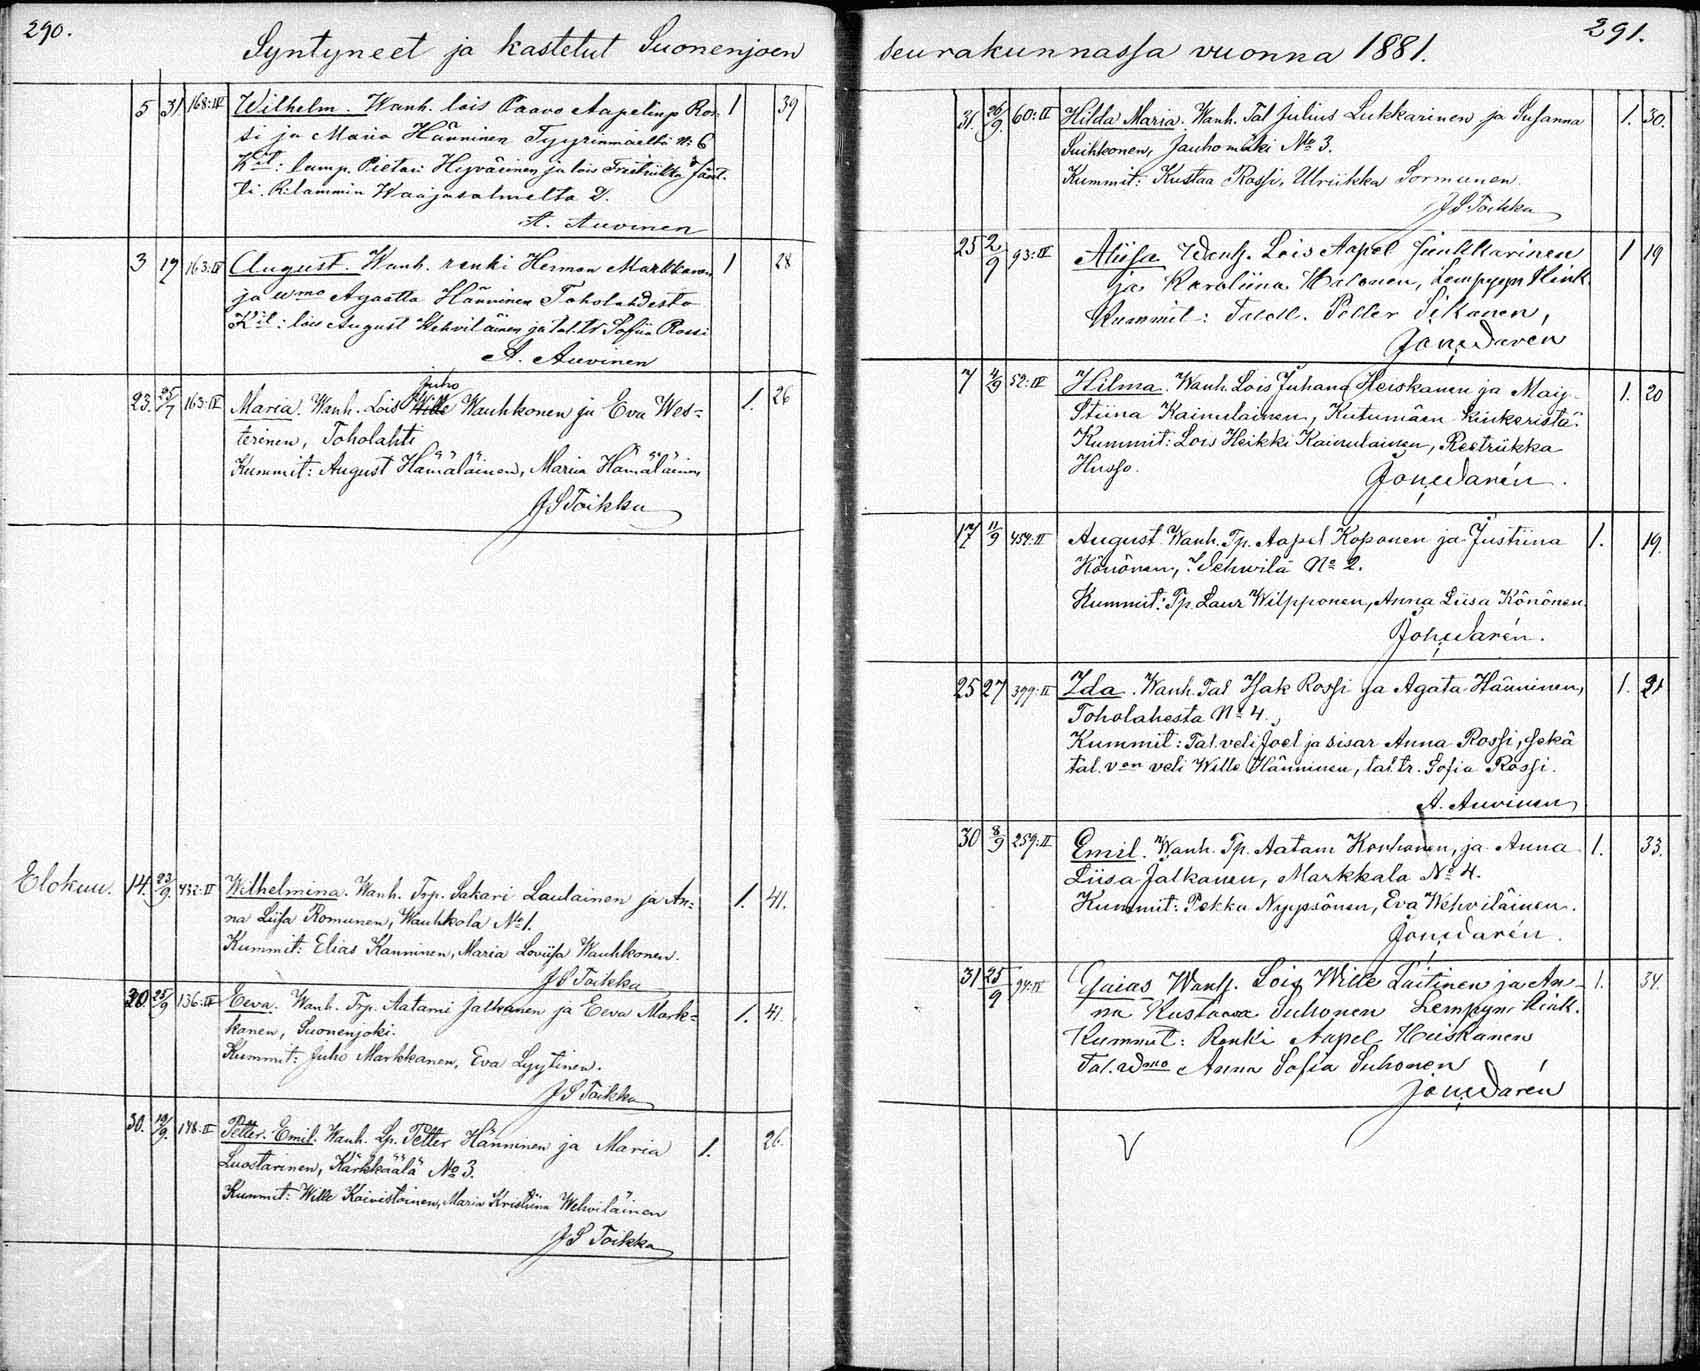 290.
Syntyneet ja kastetut Suonenjoen
5 31 168:IV Wilhelm. Wanh. lois Paavo Aapelinp Ros- 1 39
si ja Maria Hänninen Tyyrinmäeltä N: 6
K:it: lamp. Pietari Hyvärinen ja lois
Waajasalmelta 2.
A. Auvinen
3 19 163:IV August. Wanh. renki Herman Markkanen 1 28
ja wmo Agaatta Hänninen Toholahdesta
K:it: lois August Wehviläinen ja tal. tr Sofiia Rossi
A. Auvinen
Juho
23. 25/7 163:IV Maria. Wanh. Lois Wille Wauhkonen ja Eva Wes= 1. 26
terinen, Toholahti
Kummit: August Hämäläinen, Maria Hämäläinen
J S Toikka
Elokuu. 14. 23/9. 432:II Wilhelmina. Wanh. Trp. Sakari Laulainen ja An= 1. 41.
na Liisa Romunen, Wauhkola No 1.
Kummit: Elias Kanninen, Maria Loviisa Wauhkonen.
J S Toikka
20. 25/9 136:II Eeva. Wanh. Trp. Aatami Jalkanen ja Eeva Mark= 1. 41.
kanen, Suonenjoki.
Kummit: Juho Markkanen, Eva Lyytinen.
J S Toikka
30. 19/9. 148:II Petter Emil. Wanh. Lp. Petter Hänninen ja Maria 1. 26.
Luostarinen, Kärkkäälä No 3.
Kummit: Wille Koivistoinen, Maria Kristiina Wehviläinen
J S Toikka
291.
seurakunnassa vuonna 1881.
31. 26/9. 60:II Hilda Maria. Wanh. Tal Julius Lukkarinen ja Susanna 1. 30.
Suihkonen, Jauhomäki No 3.
Kummit: Kustaa Rossi, Ulriikka Sormunen.
J S Toikka
25 2/9 93:IV Aliisa Wanh. Lois Aapel Junkkarinen 1 19
ja Karoliina Halonen, Lempyyn Kink.
Kummit: Petter Sikanen,
Joh. Warén
7 4/9 52:IV Hilma. Wanh. Lois Juhana Heiskanen ja Maija 1. 20
Stiina Kainulainen, Kutumäen kinkeristä.
Kummit: Lois Heikki Kainulainen, Reetriikka
Husso.
Joh. Warén.
17 11/9 454:II August Wanh. Tp. Aapel Koponen ja Justiina 1. 19.
Könönen, Wehwilä No 2.
Kummit: Tp. Laur Wilpponen, Anna Liisa Könönen.
Joh. Warén.
25 27 399:II Ida. Wanh. Tal Isak Rossi ja Agata Hänninen, 1. 21
Toholahesta No 4.
Kummit: Tal. veli Joel ja sisar Anna Rossi, sekä
tal. von veli Wille Hänninen, tal. tr. Sofia Rossi.
A. Auvinen
30 8/9 259:II Emil. Wanh. Tp. Aatam Korhonen, ja Anna 1. 33.
Liisa Jalkanen, Markkala No 4.
Kummit: Pekka Nyyssönen, Eva Wehviläinen.
Joh. Warén.
31 25/9 94:IV Esaias Wanh. Lois Wille Laitinen ja An- 1. 34.
na Kustaava Suhonen Lempyyn Kink.
Kummit: Renki Aapel Heiskanen
Tal. wmo Anna Sofia Suhonen
Joh. Warén
V